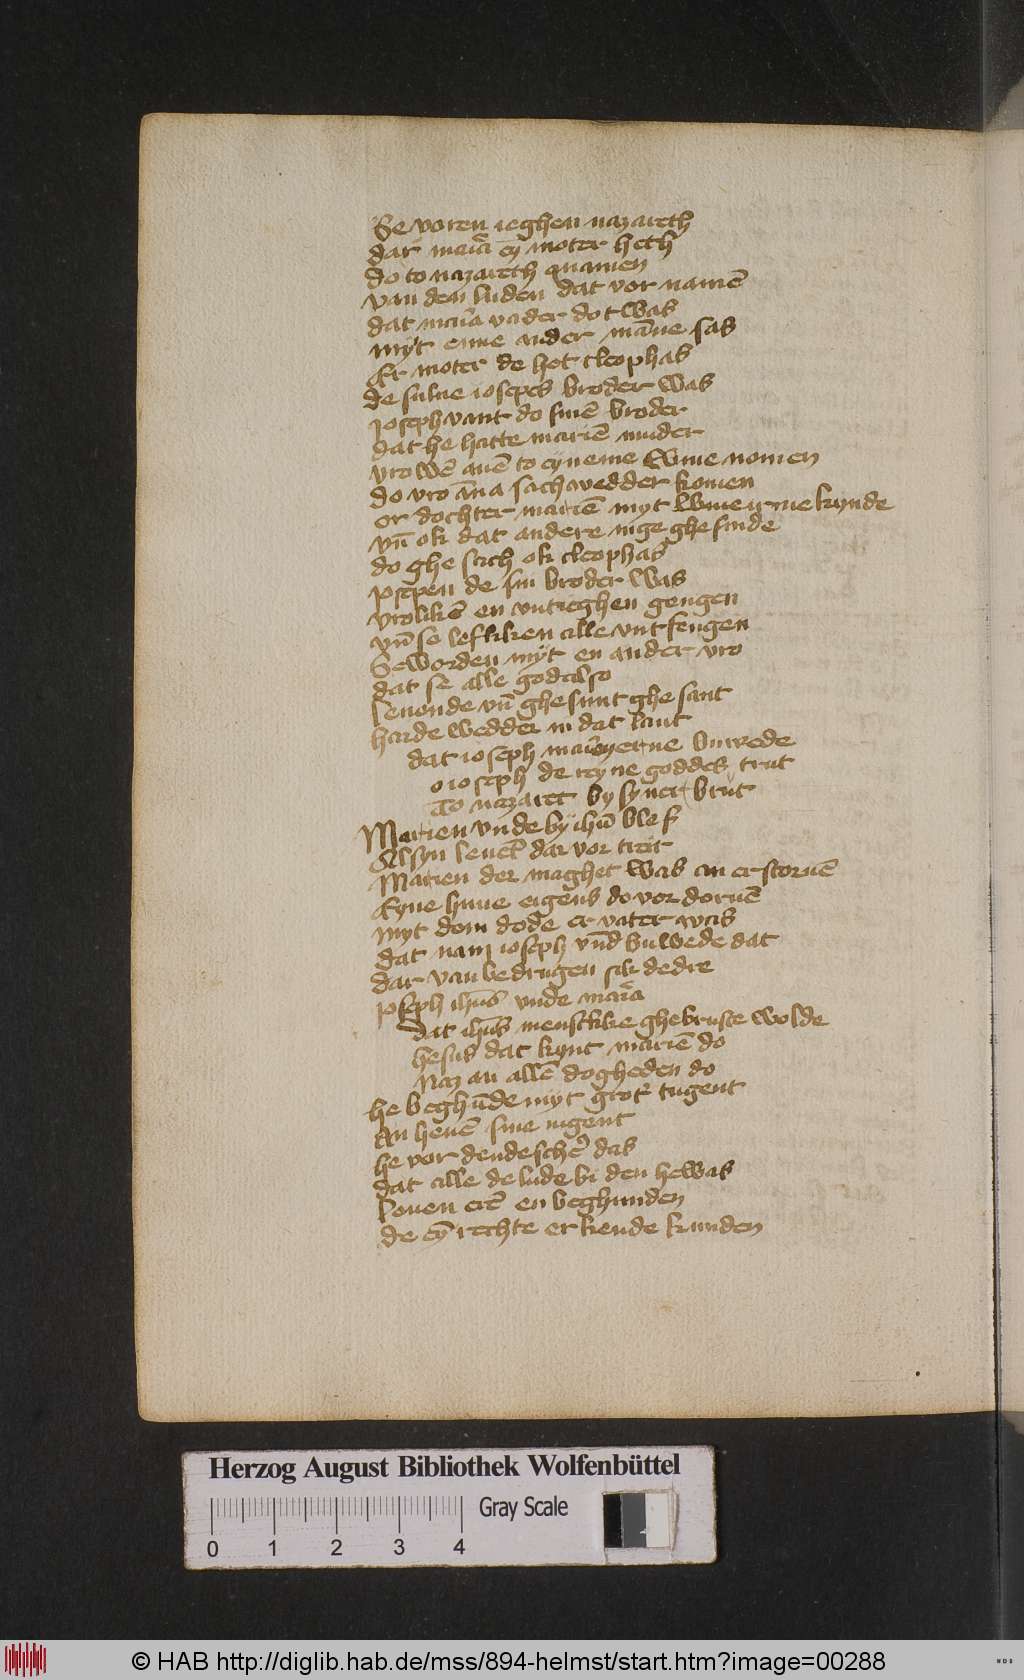 Se voren ieghen nazareth
dar mariā eȳ moter heth
do to nazareth quamen
van den luden dat vor namē
dat maria vader dot was
myt eime ander māne sas
Er moter de het cleophas
de sulue iosepes broder was
ioseph vant do sinē broder
dat he hatte mariē muder
vrowē auē to eyneme Ewme nomen
do vro āna sach wedder komen
or dochter mariē myt kynde
vn̄ ok dat andere inge ghesinde
do ghe sach ok cleophas
iosepen de sin broder was
vrolikē en vntieghen gengen
vn̄ se lefliken alle vntfengen
Se worden myt en ander vro
dat se alle god also
leuende vn̄ ghesunt ghe sant
harde wedder in dat lant
dat ioseph buwede
o ioseph de reyne goddes trut
To nazaret by syner brut
Marien vnde by ihū blef
Al syn leuēt dar vor treif
Marien der maghet was an erstoruē
Eyne huue eigens do vor doruē
myt dem dode er vater was
dat nam ioseph vnd buwede dat
dar van bedrugen sik dedre
ioseph ihūs vnde maria
dat ihūs menschlike ghebruste wolde
hesus dat kynt mariē do
Naz an allē dogheden do
he beghūde myt grot' tugent
An heuē sine iugent
he vor dendeschē das
dat alle de lude bi den he was
louen erē en beghunden
de eȳ rechte erkende kunden
Herzog August Bibliothek Wolfenbüttel
Gray Scale
0 1 2 3 4
© HAB http://diglib.hab.de/mss/894-helmst/start.htm?image=00288